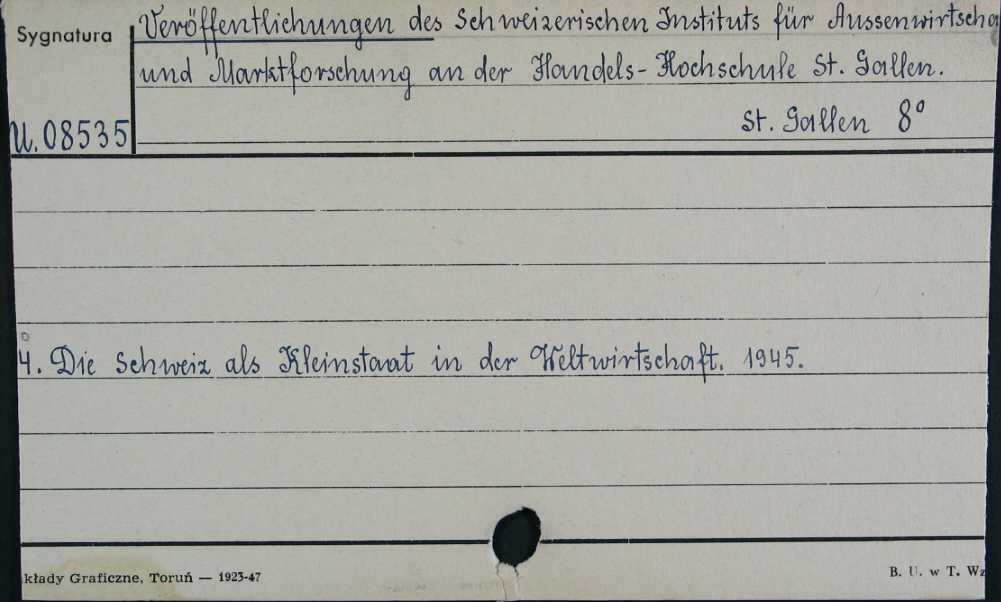 Sygnatura
Veröffentlichungen des Schweizerischen Instituts für Aussenwirtscha
und Marktforschung an der Handels-Hochschule St. Gallen.
St. Gallen 8°
U. 08535
4. Die Schweiz als Kleinstaat in der Weltwirtschaft. 1945.
kłady Graficzne, Toruń — 1923-47
B. U. w T. Wz